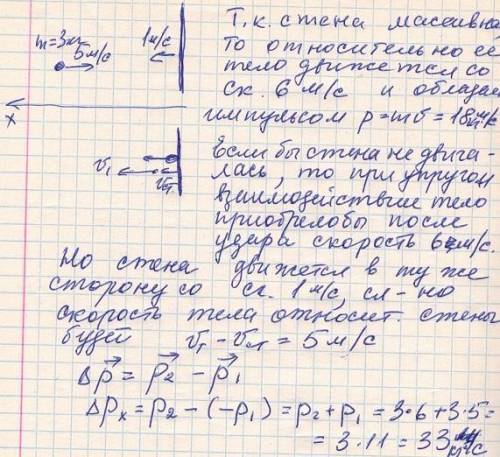 Т.к. стена массивна,
m=3кг 5м/с 1м/с
то относительно её
тело движется со
ск. 6 м/с и обладает
импульсом p=mv=18
x
Если бы стена не двига-
лась, то при упругом
взаимодействие тело
приобрело бы после
удара скорость 6 м/с.
v₁ vст.
Но стена движется в ту же
сторону со ск. 1 м/с, сл-но
скорость тела относит. стены
будет vт - vст = 5 м/с
Δp⃗ = p⃗₂ - p⃗₁
Δpₓ = p₂ - (-p₁) = p₂ + p₁ = 3·6 + 3·5 =
= 3·11 = 33